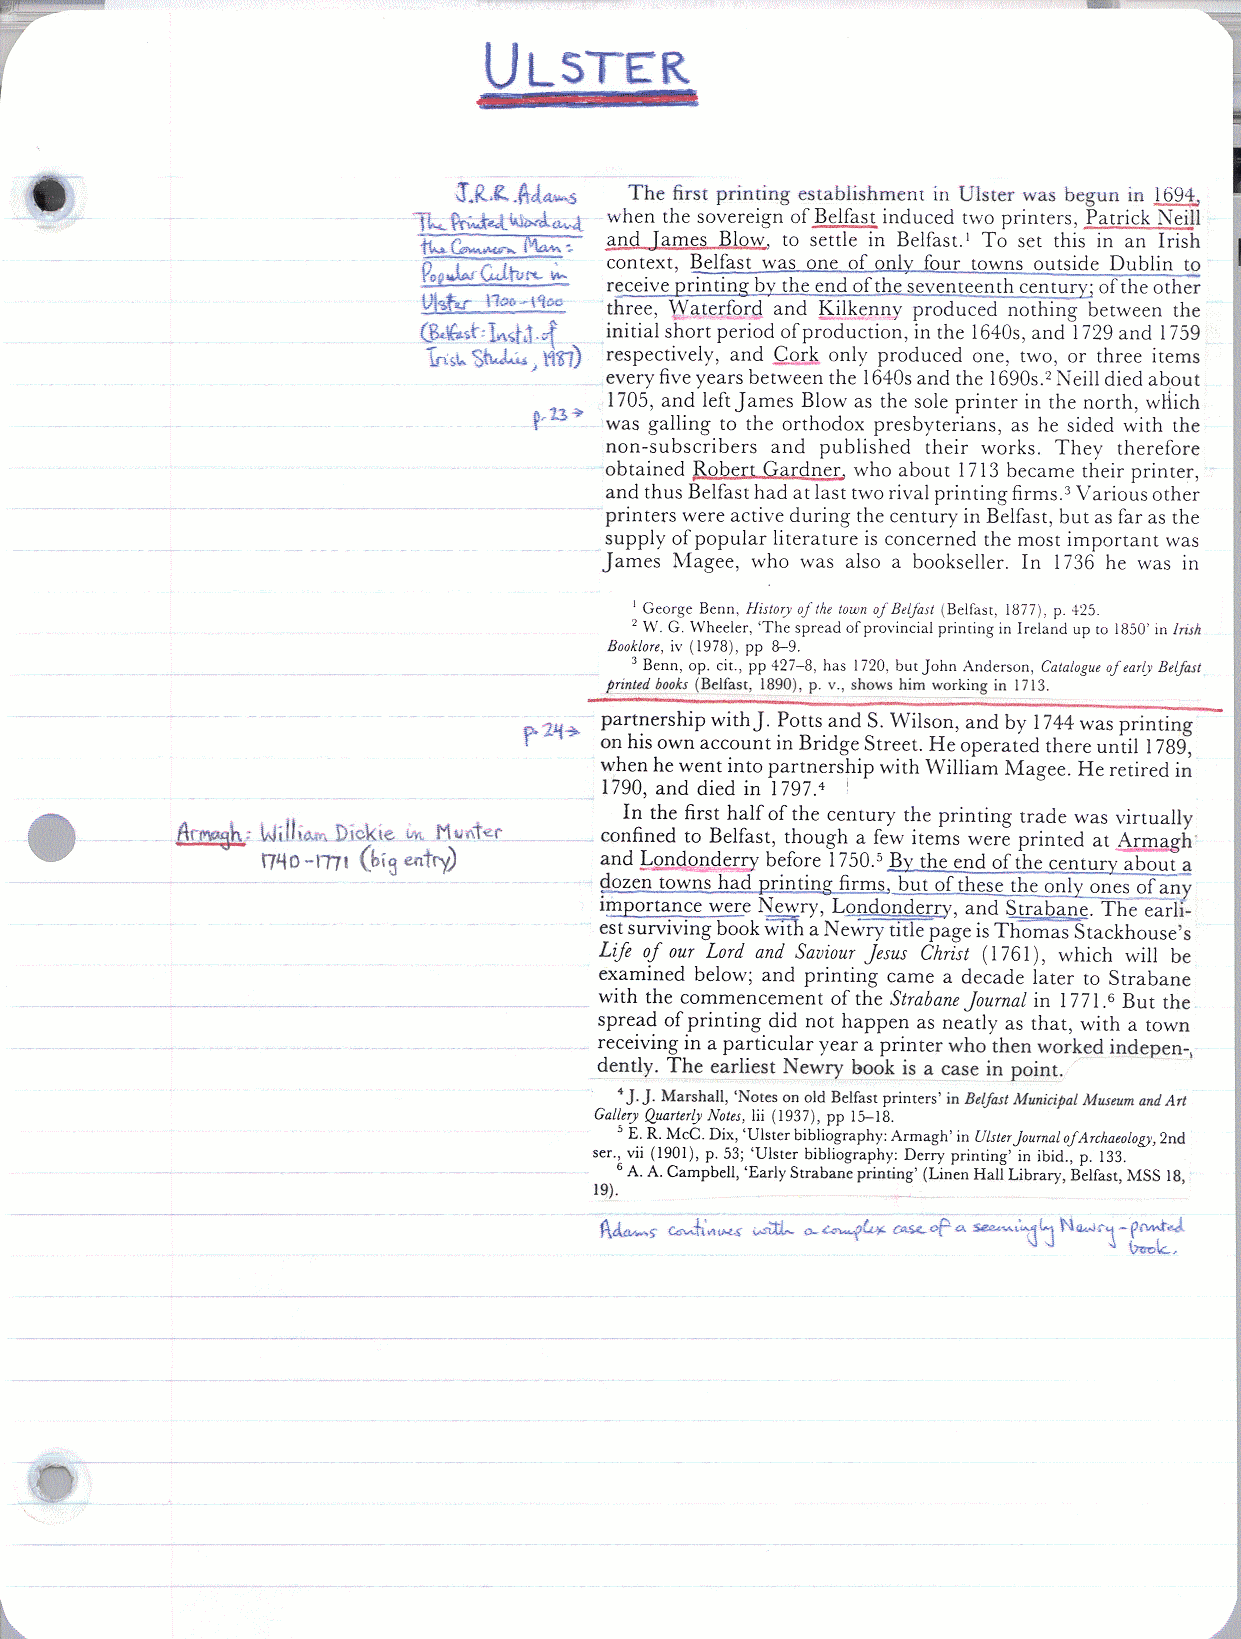 ULSTER
J.R.R. Adams
The Printed Word and
the Common Man:
Popular Culture in
Ulster 1700-1900
(Belfast: Instit. of
Irish Studies, 1987)
p. 23→
The first printing establishment in Ulster was begun in 1694,
when the sovereign of Belfast induced two printers, Patrick Neill
and James Blow, to settle in Belfast.¹ To set this in an Irish
context, Belfast was one of only four towns outside Dublin to
receive printing by the end of the seventeenth century; of the other
three, Waterford and Kilkenny produced nothing between the
initial short period of production, in the 1640s, and 1729 and 1759
respectively, and Cork only produced one, two, or three items
every five years between the 1640s and the 1690s.² Neill died about
1705, and left James Blow as the sole printer in the north, which
was galling to the orthodox presbyterians, as he sided with the
non-subscribers and published their works. They therefore
obtained Robert Gardner, who about 1713 became their printer,
and thus Belfast had at last two rival printing firms.³ Various other
printers were active during the century in Belfast, but as far as the
supply of popular literature is concerned the most important was
James Magee, who was also a bookseller. In 1736 he was in
¹ George Benn, History of the town of Belfast (Belfast, 1877), p. 425.
² W. G. Wheeler, ‘The spread of provincial printing in Ireland up to 1850’ in Irish
Booklore, iv (1978), pp 8–9.
³ Benn, op. cit., pp 427–8, has 1720, but John Anderson, Catalogue of early Belfast
printed books (Belfast, 1890), p. v., shows him working in 1713.
p. 24→
partnership with J. Potts and S. Wilson, and by 1744 was printing
on his own account in Bridge Street. He operated there until 1789,
when he went into partnership with William Magee. He retired in
1790, and died in 1797.⁴
Armagh: William Dickie in Munter
1740-1771 (big entry)
In the first half of the century the printing trade was virtually
confined to Belfast, though a few items were printed at Armagh
and Londonderry before 1750.⁵ By the end of the century about a
dozen towns had printing firms, but of these the only ones of any
importance were Newry, Londonderry, and Strabane. The earli-
est surviving book with a Newry title page is Thomas Stackhouse’s
Life of our Lord and Saviour Jesus Christ (1761), which will be
examined below; and printing came a decade later to Strabane
with the commencement of the Strabane Journal in 1771.⁶ But the
spread of printing did not happen as neatly as that, with a town
receiving in a particular year a printer who then worked indepen-
dently. The earliest Newry book is a case in point.
⁴ J. J. Marshall, ‘Notes on old Belfast printers’ in Belfast Municipal Museum and Art
Gallery Quarterly Notes, lii (1937), pp 15–18.
⁵ E. R. McC. Dix, ‘Ulster bibliography: Armagh’ in Ulster Journal of Archaeology, 2nd
ser., vii (1901), p. 53; ‘Ulster bibliography: Derry printing’ in ibid., p. 133.
⁶ A. A. Campbell, ‘Early Strabane printing’ (Linen Hall Library, Belfast, MSS 18,
19).
Adams continues with a complex case of a seemingly Newry-printed
book.